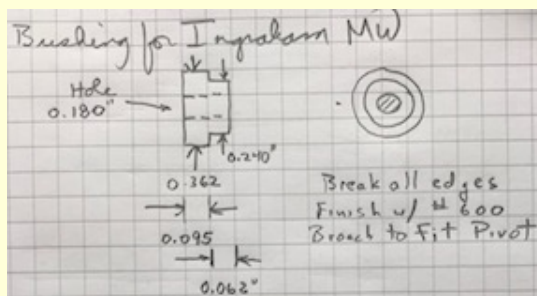 Bushing for Ingraham MW
Hole
0.180"
0.240"
0.362
0.095
0.062"
Break all edges
Finish w/ # 600
Broach to Fit Pivot